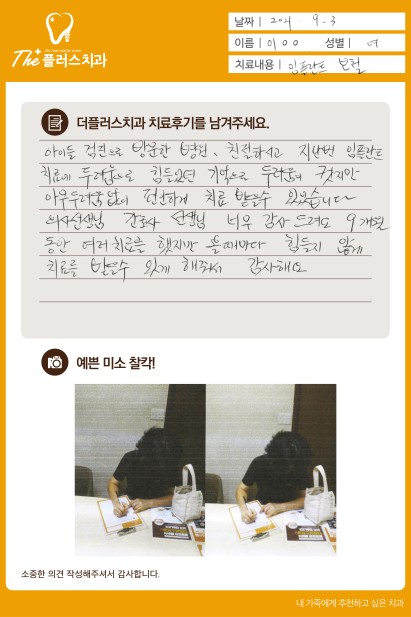 THE PLUS DENTAL CLINIC
The+ 플러스치과
날짜 | 2021. 9. 3
이름 | 이OO 성별 | 여
치료내용 | 임플란트 보철
더플러스치과 치료후기를 남겨주세요.
아이들 검진으로 방문한 병원, 친절하시고 지난번 임플란트
치료에 두려움으로 힘들었던 기억으로 두려움이 컷지만
아무두려움 없이 편안하게 치료 받을수 있었습니다
의사선생님 간호사 선생님 너무 감사드려요 9개월
동안 여러치료를 했지만 올때마다 힘들지 않게
치료를 받을수 있게 해줘서 감사해요
예쁜 미소 찰칵!
소중한 의견 작성해주셔서 감사합니다.
내 가족에게 추천하고 싶은 치과